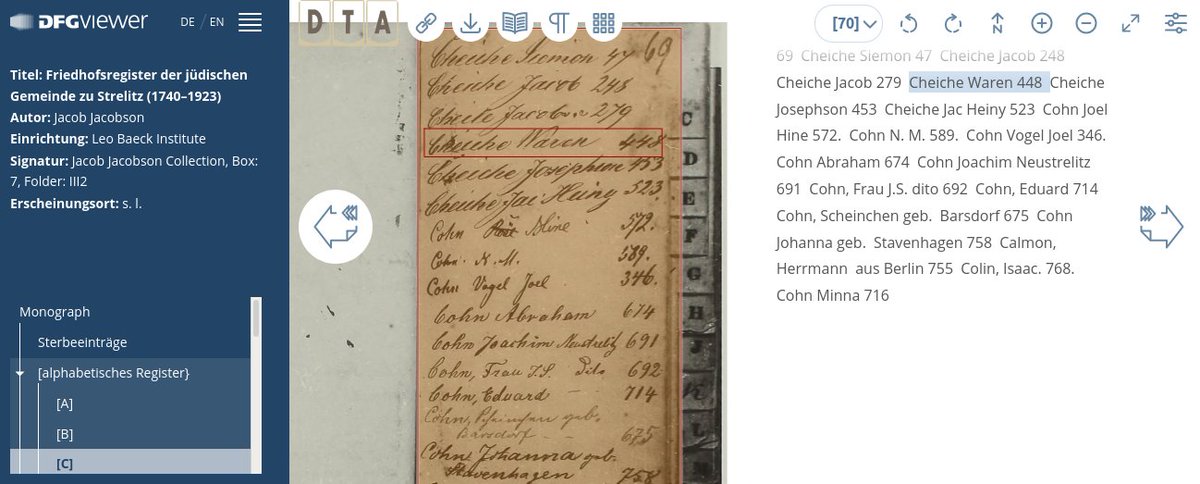 DFGVIEWER
DE / EN
Titel: Friedhofsregister der jüdischen
Gemeinde zu Strelitz (1740–1923)
Autor: Jacob Jacobson
Einrichtung: Leo Baeck Institute
Signatur: Jacob Jacobson Collection, Box:
7, Folder: III2
Erscheinungsort: s. l.
Monograph
Sterbeeinträge
[alphabetisches Register}
[A]
[B]
[C]
D T A
[70]
69
Cheiche Siemon 47
Cheiche Jacob 248
Cheiche Jacob 279
Cheiche Waren 448
Cheiche Josephson 453
Cheiche Jac Heiny 523.
Cohn Hine 572.
Cohn N. M. 589.
Cohn Vogel Joel 346.
Cohn Abraham 674
Cohn Joachim Neustrelitz 691
Cohn, Frau J.S. dito 692
Cohn, Eduard – 714
Cohn, Scheinchen geb.
Barsdorf - - 675
Cohn Johanna geb.
Stavenhagen 758
C
D
E
F
G
H
J
K
L
M
69 Cheiche Siemon 47 Cheiche Jacob 248
Cheiche Jacob 279 Cheiche Waren 448 Cheiche
Josephson 453 Cheiche Jac Heiny 523 Cohn Joel
Hine 572. Cohn N. M. 589. Cohn Vogel Joel 346.
Cohn Abraham 674 Cohn Joachim Neustrelitz
691 Cohn, Frau J.S. dito 692 Cohn, Eduard 714
Cohn, Scheinchen geb. Barsdorf 675 Cohn
Johanna geb. Stavenhagen 758 Calmon,
Herrmann aus Berlin 755 Colin, Isaac. 768.
Cohn Minna 716